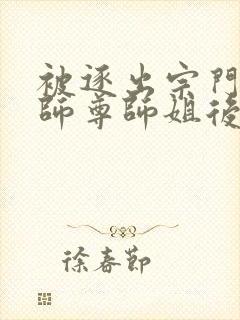 被逐出宗門
師尊師姐後
徐春節